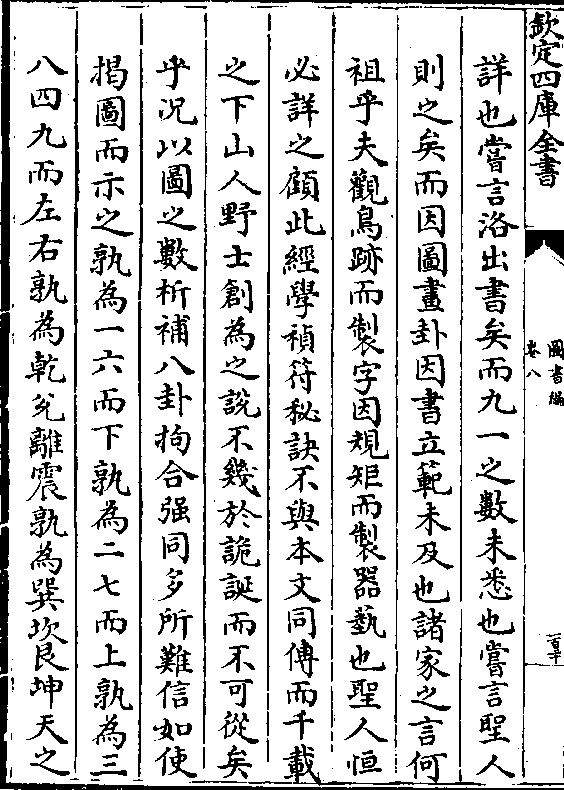 欽定四庫全書
圖書編
卷八
詳也嘗言洛出書矣而九一之數未悉也嘗言聖人
則之矣而因圖畫卦因書立範未及也諸家之言何
祖乎夫觀鳥跡而製字因規矩而製器藝也聖人恒
必詳之顧此經學禎符秘訣不與本文同傳而千載
之下山人野士創為之說不幾於詭誕而不可從矣
乎況以圖之數析補八卦拘合强同多所難信如使
揭圖而示之孰為一六而下孰為二七而上孰為三
八四九而左右孰為乾兊離震孰為巽坎艮坤天之